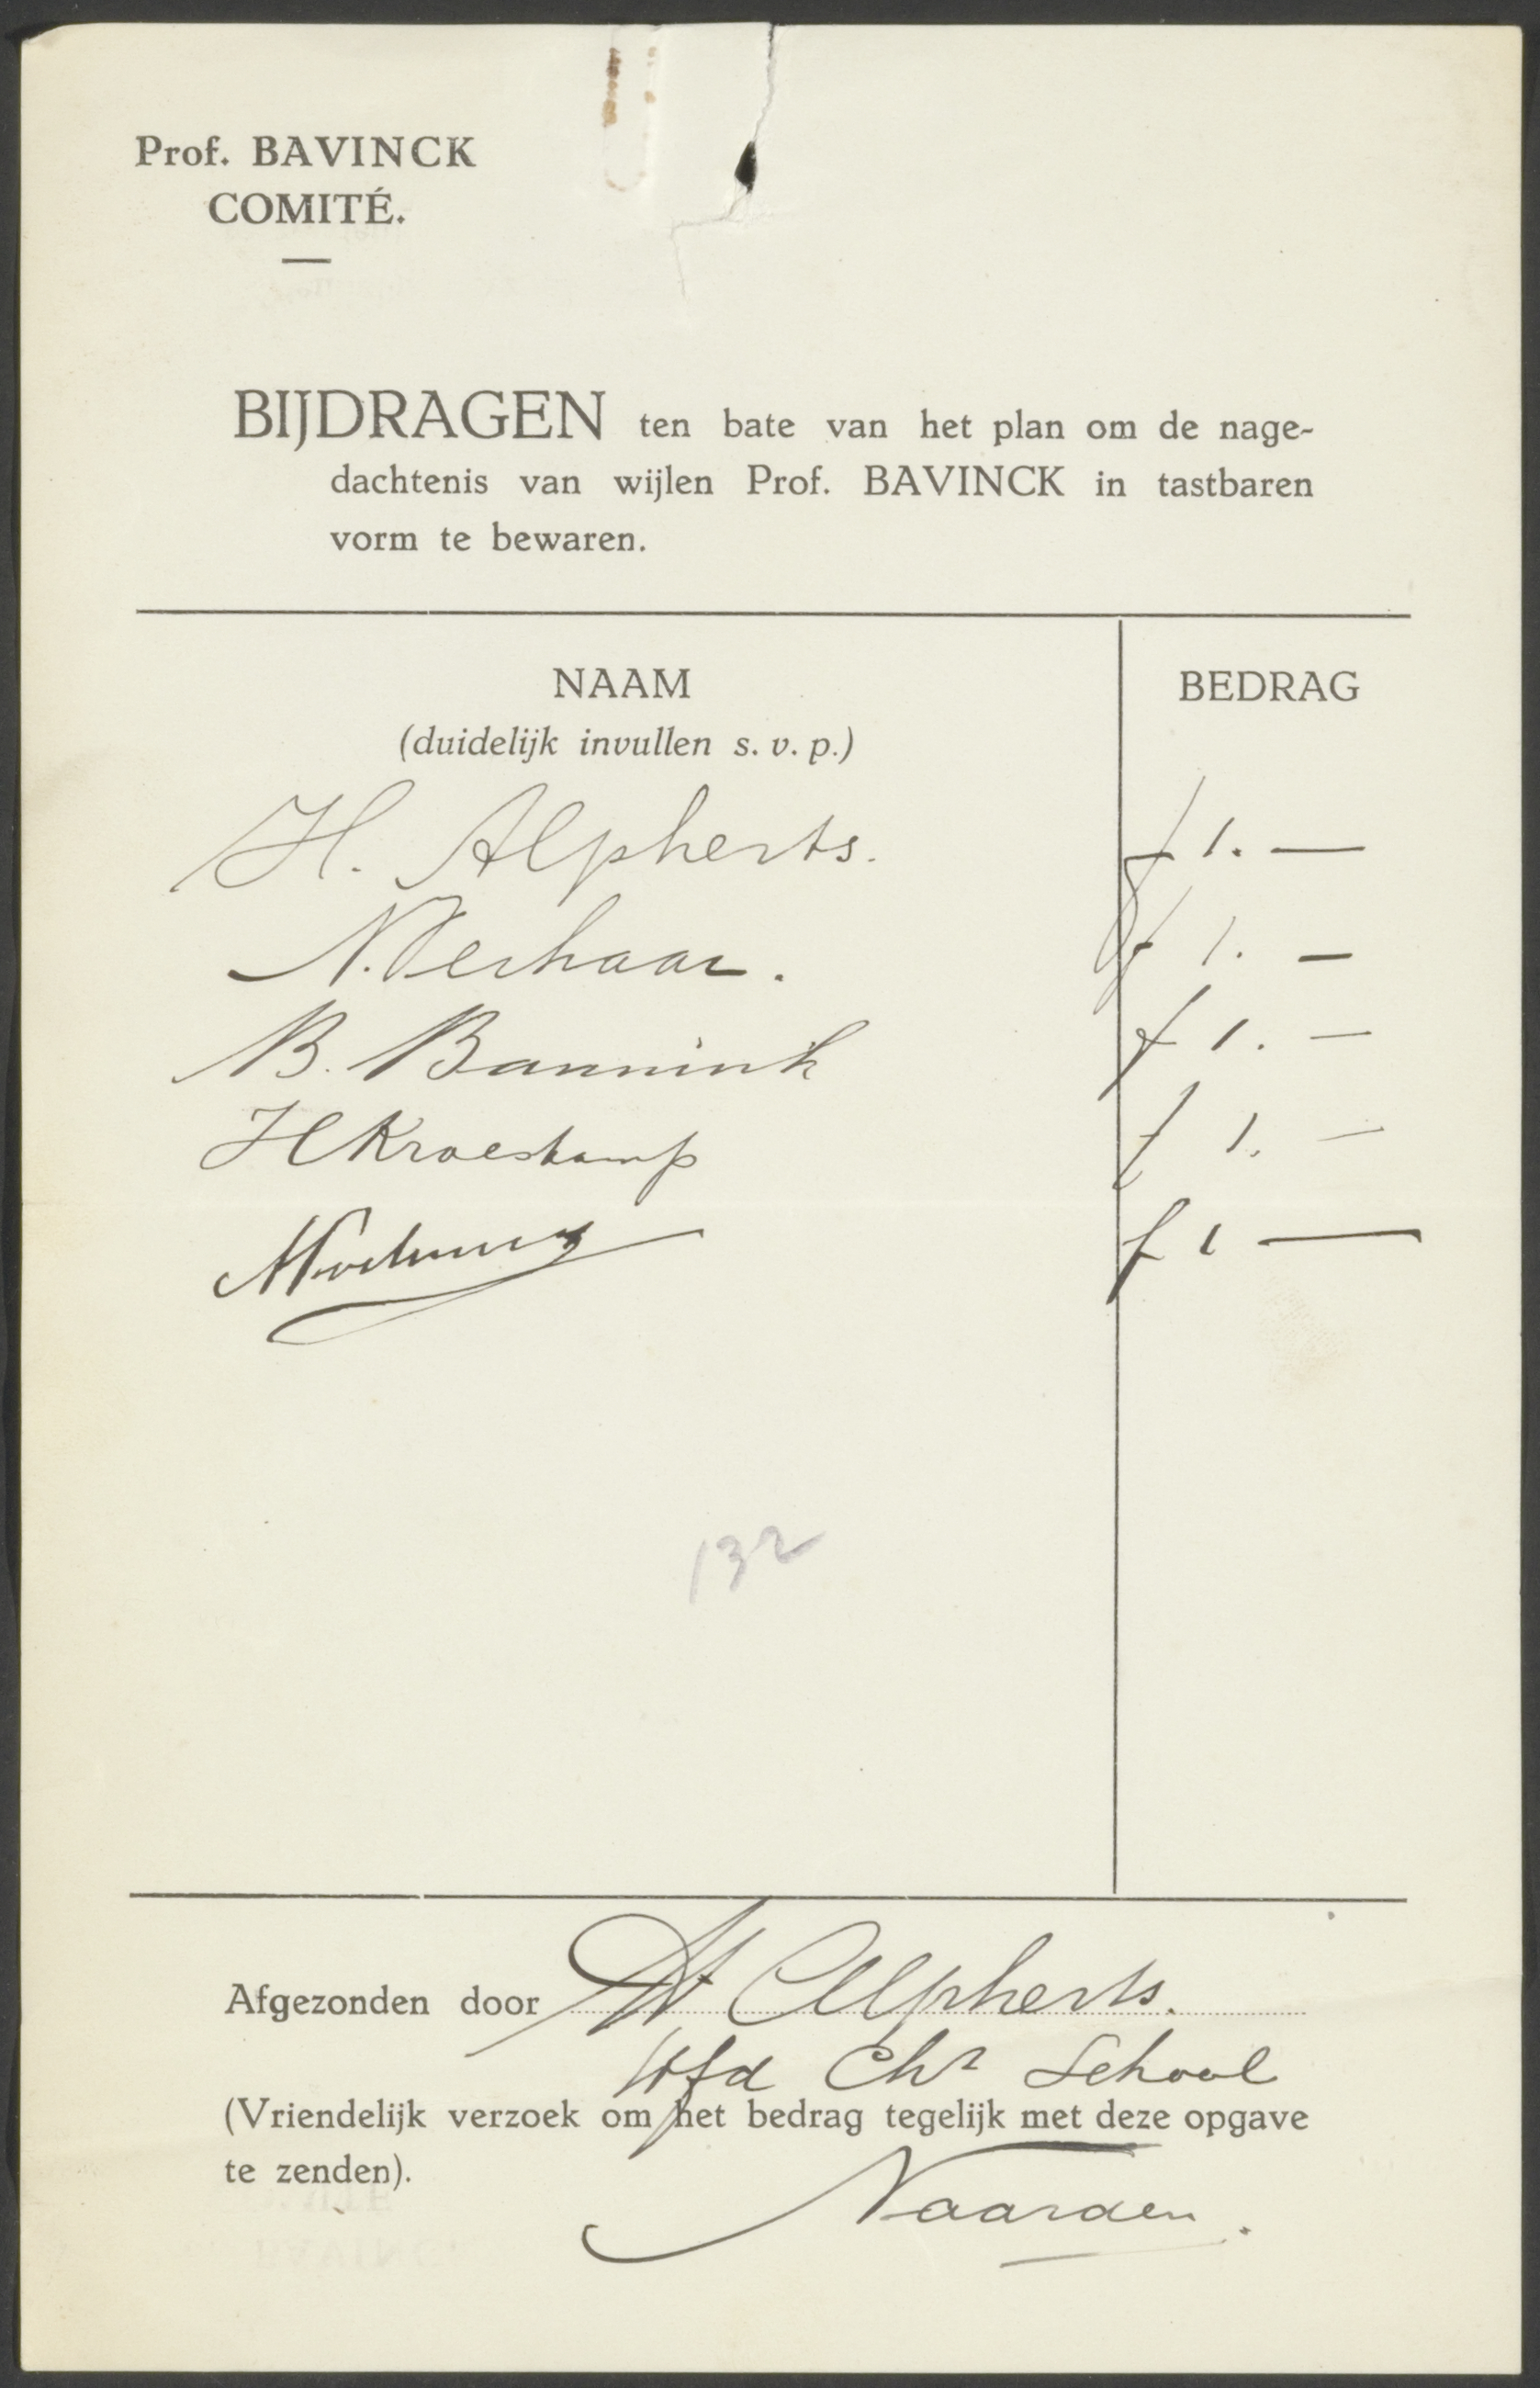 Prof. BAVINCK
COMITÉ.
BIJDRAGEN ten bate van het plan om de nage-
dachtenis van wijlen Prof. BAVINCK in tastbaren
vorm te bewaren.
NAAM BEDRAG
(duidelijk invullen s. v. p.)
H. Alpherts. f 1. —
N. Verhaar. f 1. —
B. Bannink f 1. —
H Kroeskamp f 1. —
f 1 —
132
Afgezonden door H Alpherts.
Hfd Chr School
(Vriendelijk verzoek om het bedrag tegelijk met deze opgave
te zenden).
Naarden.